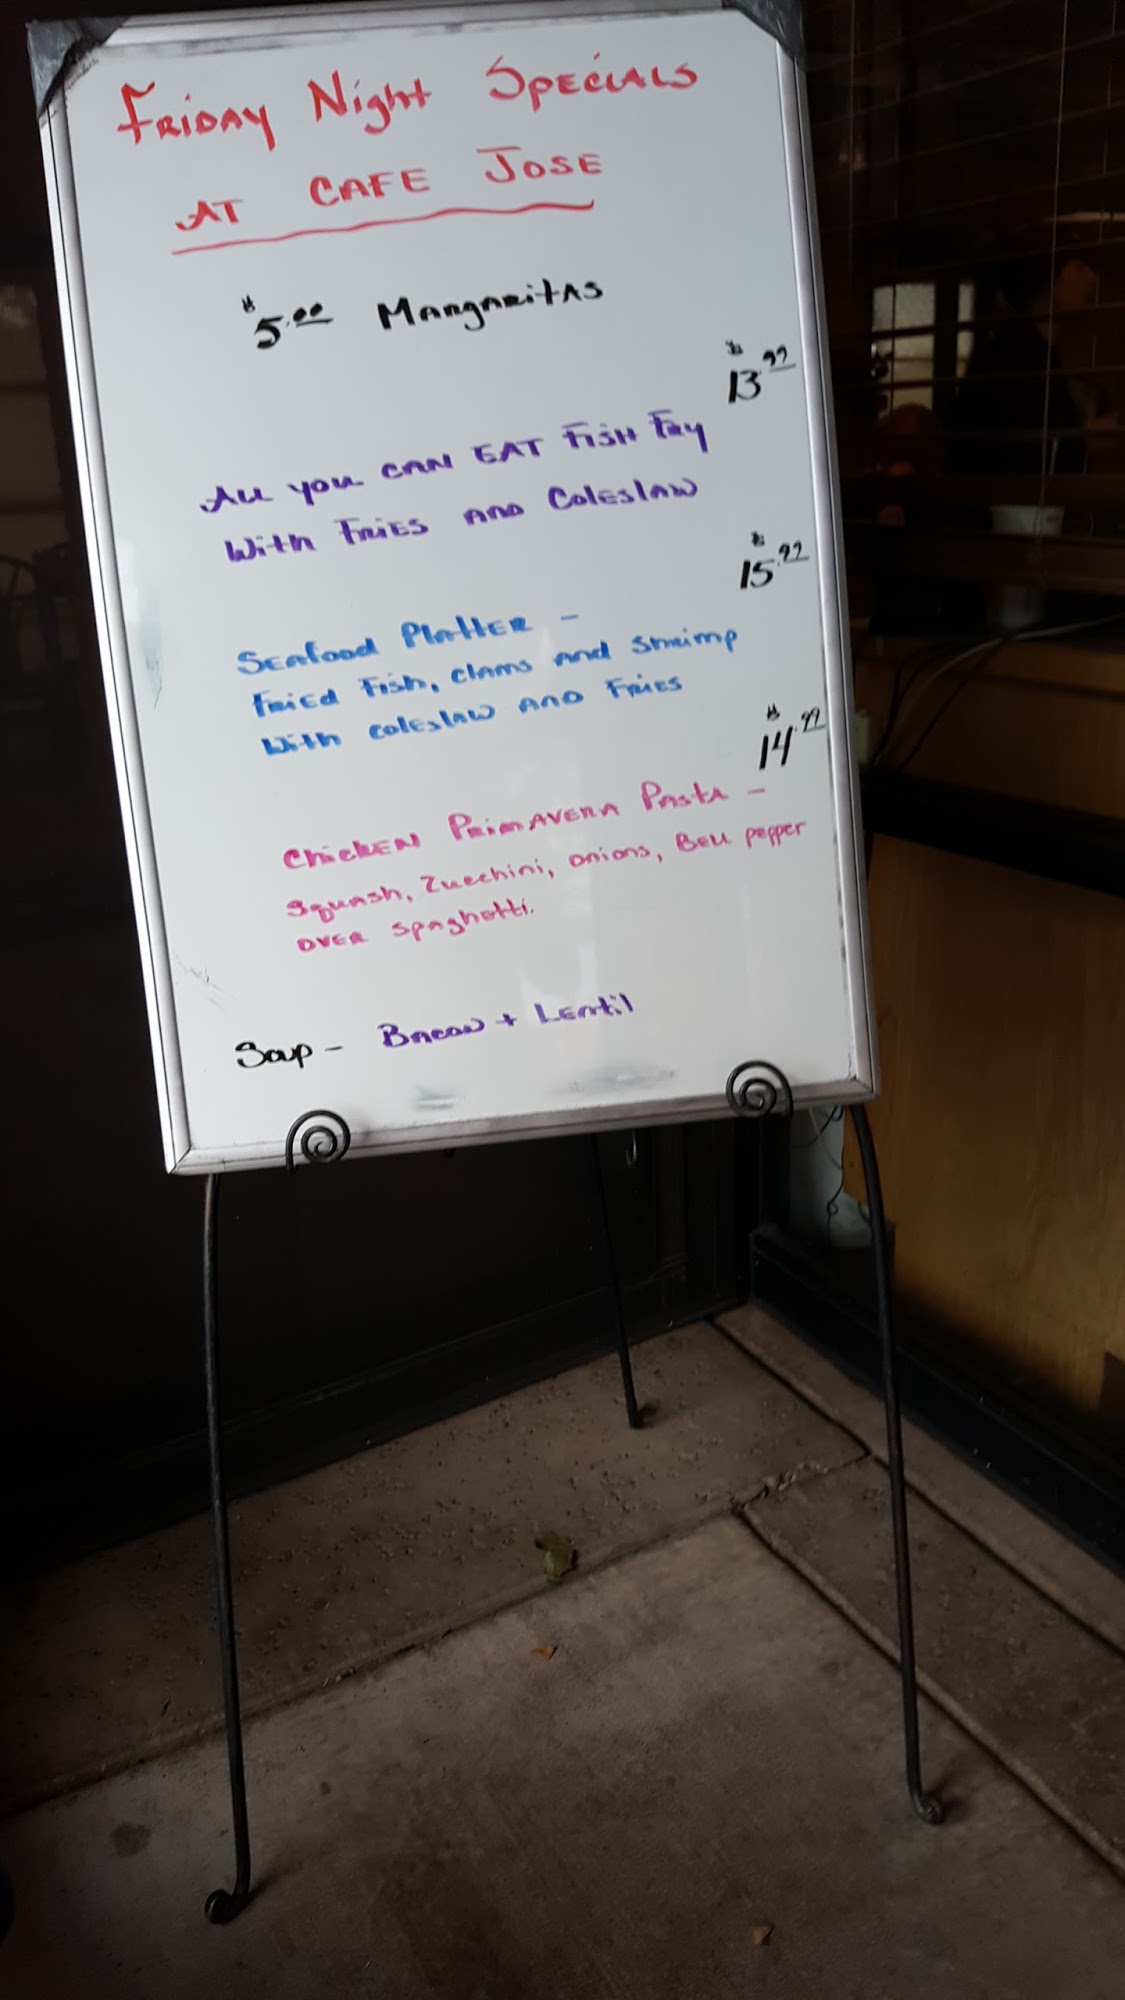 FRIDAY Night SPECIALS
AT CAFE JOSE
$5.00 MARGARITAS
$13.99
ALL YOU CAN EAT FISH FRY
With FRIES AND COLESLAW
$15.99
SEAfood PlattER -
FRIED FISH, clAMS AND SHRIMP
With COLESLAW AND FRIES
$14.99
ChickEN PRIMAVERA PASTA -
Squash, Zucchini, onions, BELL pepper
OVER spaghetti.
Soup - BACON + LENtil